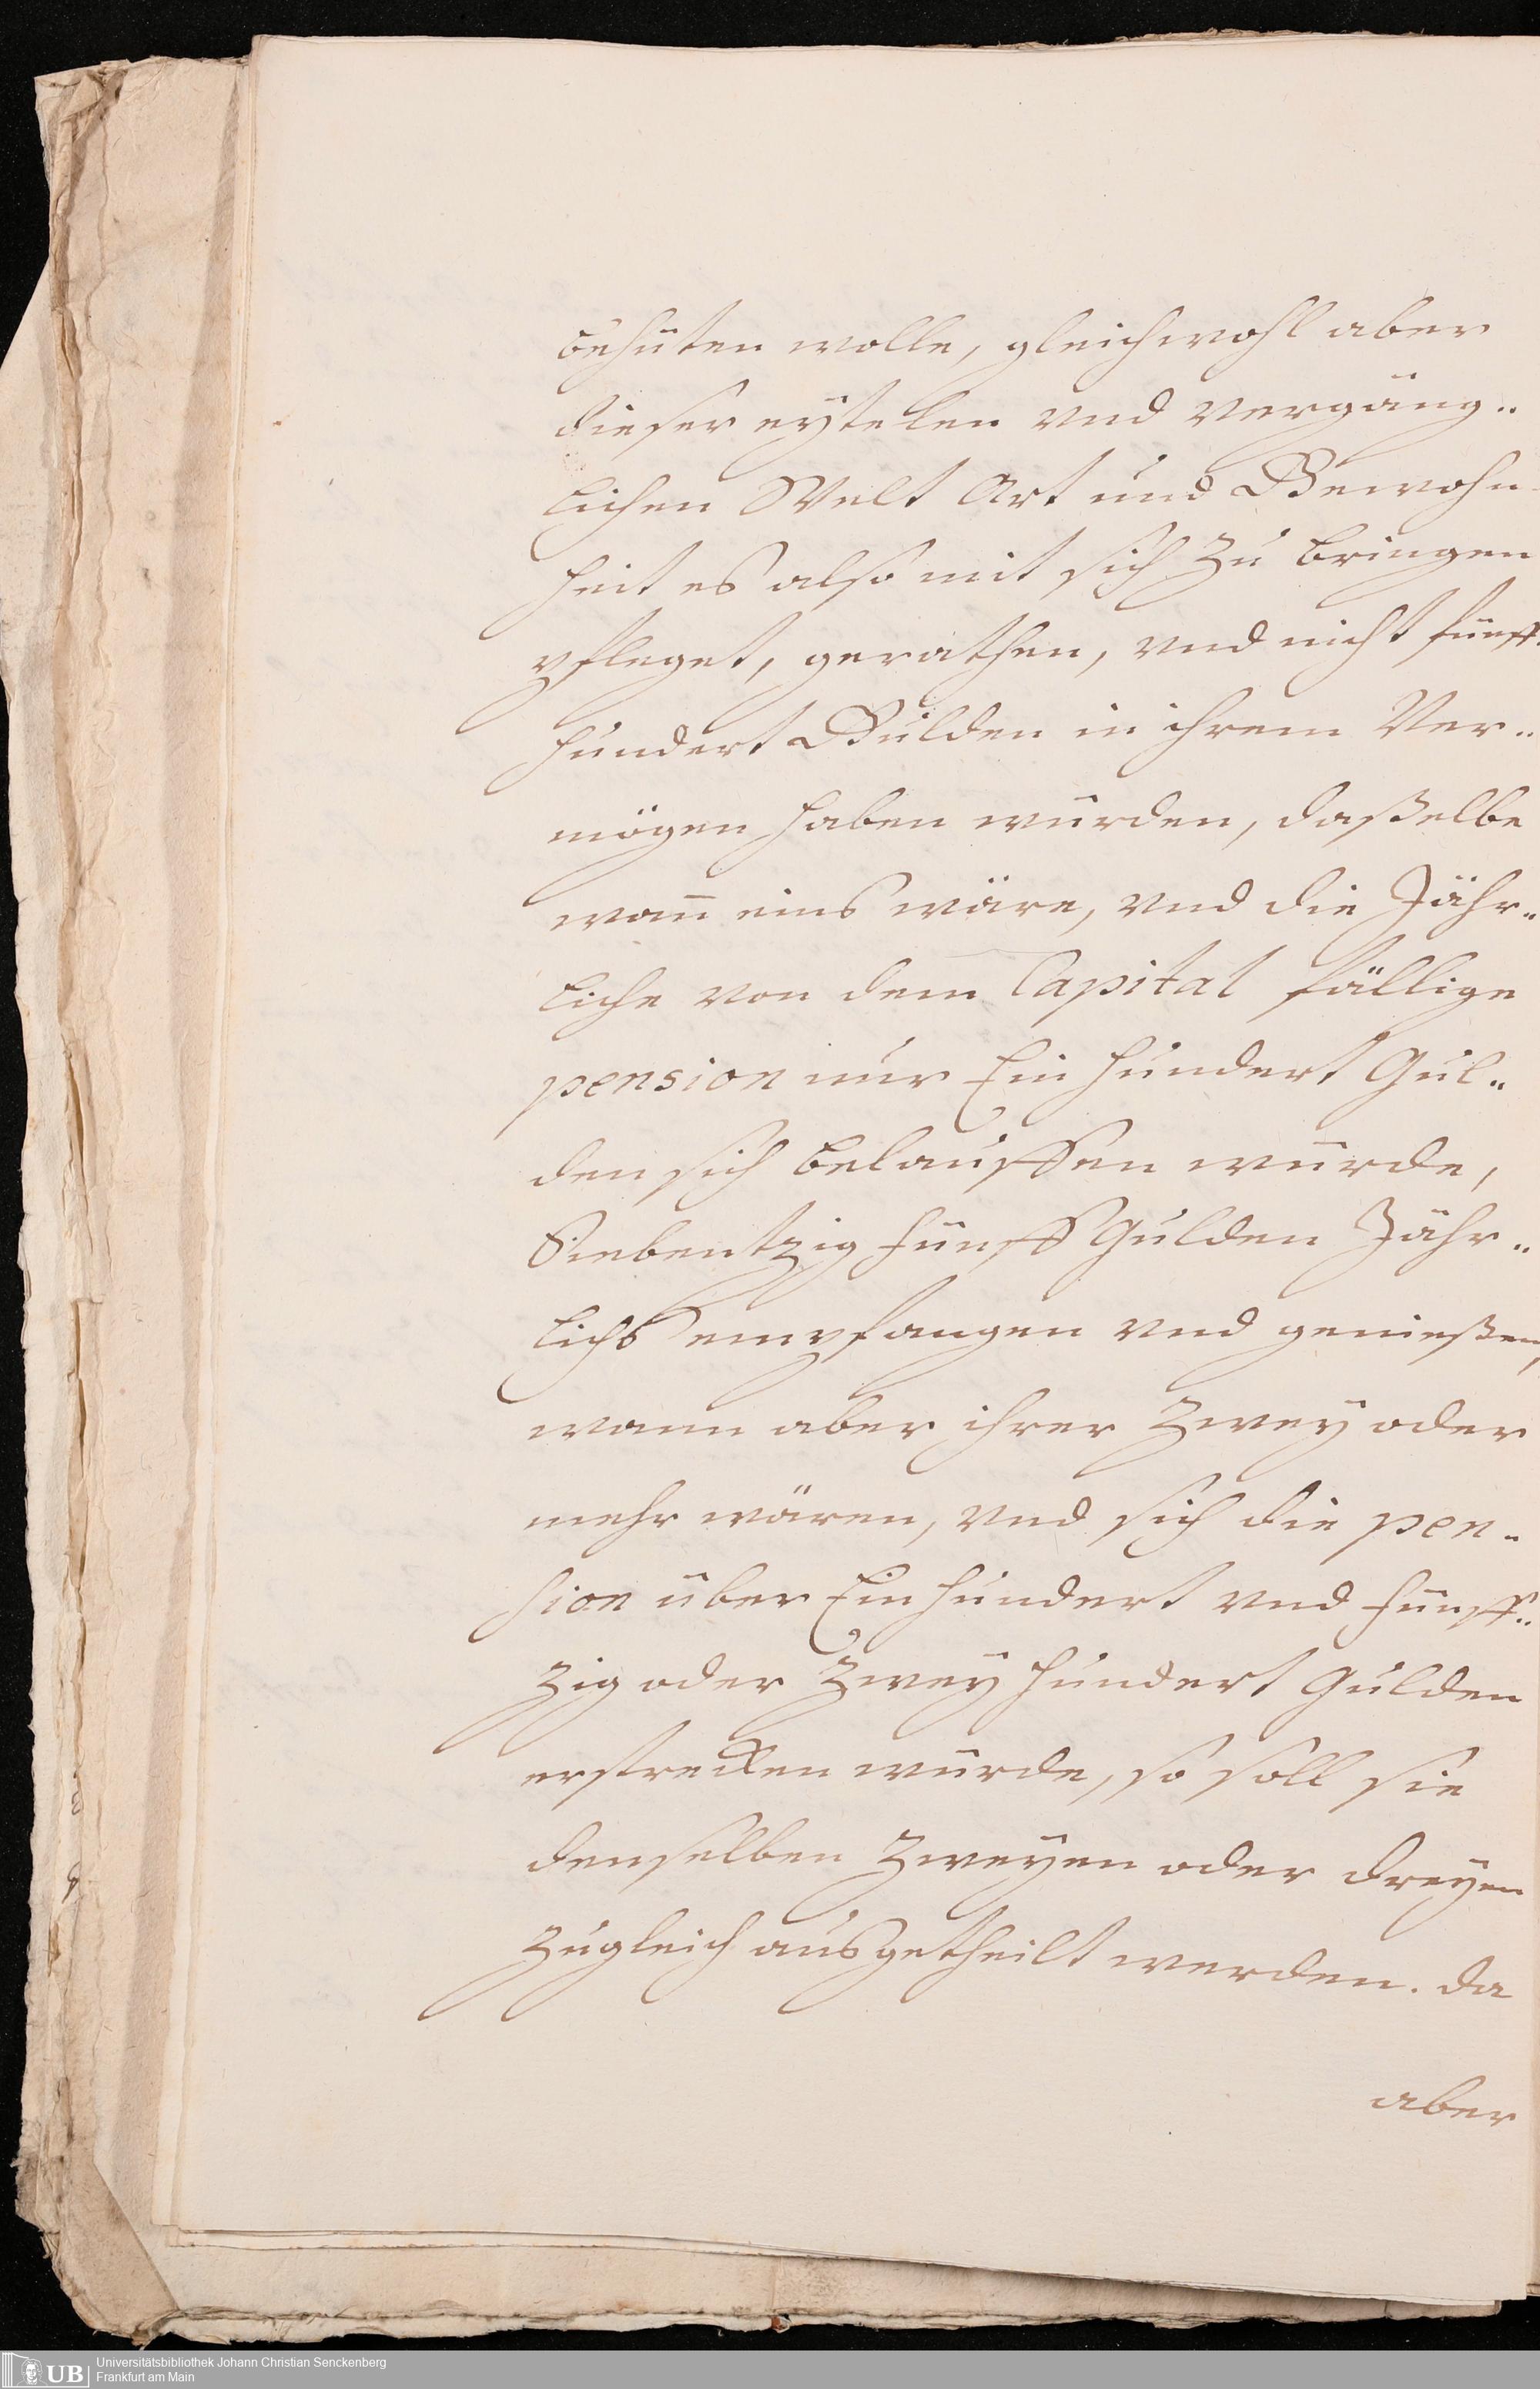 behüten wolle, gleichwohl aber
dieser eytelen vnd vergäng„
lichen Welt Art und Gewohn„
heit es also mit sich zu bringen
pfleget, gerathen, vnd nicht fünff„
hundert Gulden in ihrem Ver„
mögen haben wurden, daßelbe
wañ eins wäre, vnd die Jähr„
liche von dem Capital fällige
pension nur Ein hundert Gul„
den sich belauffen wurde,
Siebentzig fünff Gulden Jähr„
lichs empfangen vnd genießen,
wann aber ihrer Zwey oder
mehr wären, vnd sich die pen„
sion über Ein hundert vnd fünff„
zig oder Zwey hundert Gulden
erstrecken wurde, so soll sie
denselben Zweyen oder dreyen
zugleich ausgetheilt werden. da
aber
UB Universitätsbibliothek Johann Christian Senckenberg
Frankfurt am Main